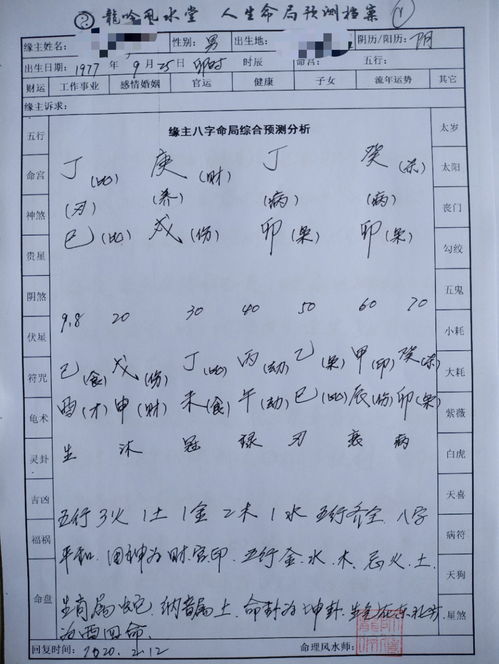 龍吟風水堂 人生命局预测档案
缘主姓名: 性别: 男 出生地: 阴历/阳历: 阴
出生日期: 1977 年 9 月 25日 卯时 时辰 命宫: 五行:
财运 工作事业 感情婚姻 官运 健康 子女 流年运势 其它
缘主诉求:
五行 缘主八字命局综合预测分析 太岁
命宫 丁(比) 庚(财) 丁 癸(杀) 太阳
神煞 (刃) (养) (病) (病) 丧门
贵星 巳(比) 戌(伤) 卯(枭) 卯(枭) 勾绞
阴煞 五鬼
伏星 9.8 20 30 40 50 60 70 小耗
符咒 己(食) 戊(伤) 丁(比) 丙(劫) 乙(枭) 甲(印) 癸(杀) 大耗
龟术 酉(才) 申(财) 未(食) 午(劫) 巳(比) 辰(伤) 卯(枭) 紫薇
灵卦 生 沐 冠 禄 刃 衰 病 白虎
吉凶 五行3火1土1金2木1水 五行齐全.八字 天喜
福祸 平和.用神为财官印.五行金.水.木.忌火.土. 病符
天狗
命盘 生肖属蛇.纳音属土.命卦为坤卦. 星煞
为西四命.
回复时间: 2020.2.12 命理风水师: